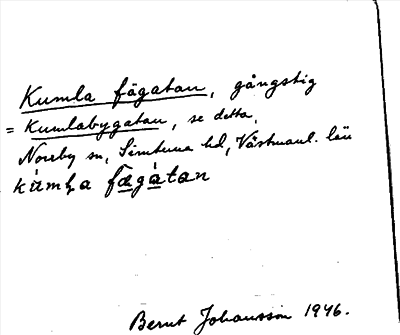 Kumla fägatan, gångstig
= Kumlabygatan, se detta,
Norrby sn, Simtuna hd, Västmanl. län
kùmļa fæ̀gàtan
Bernt Johansson 1946.